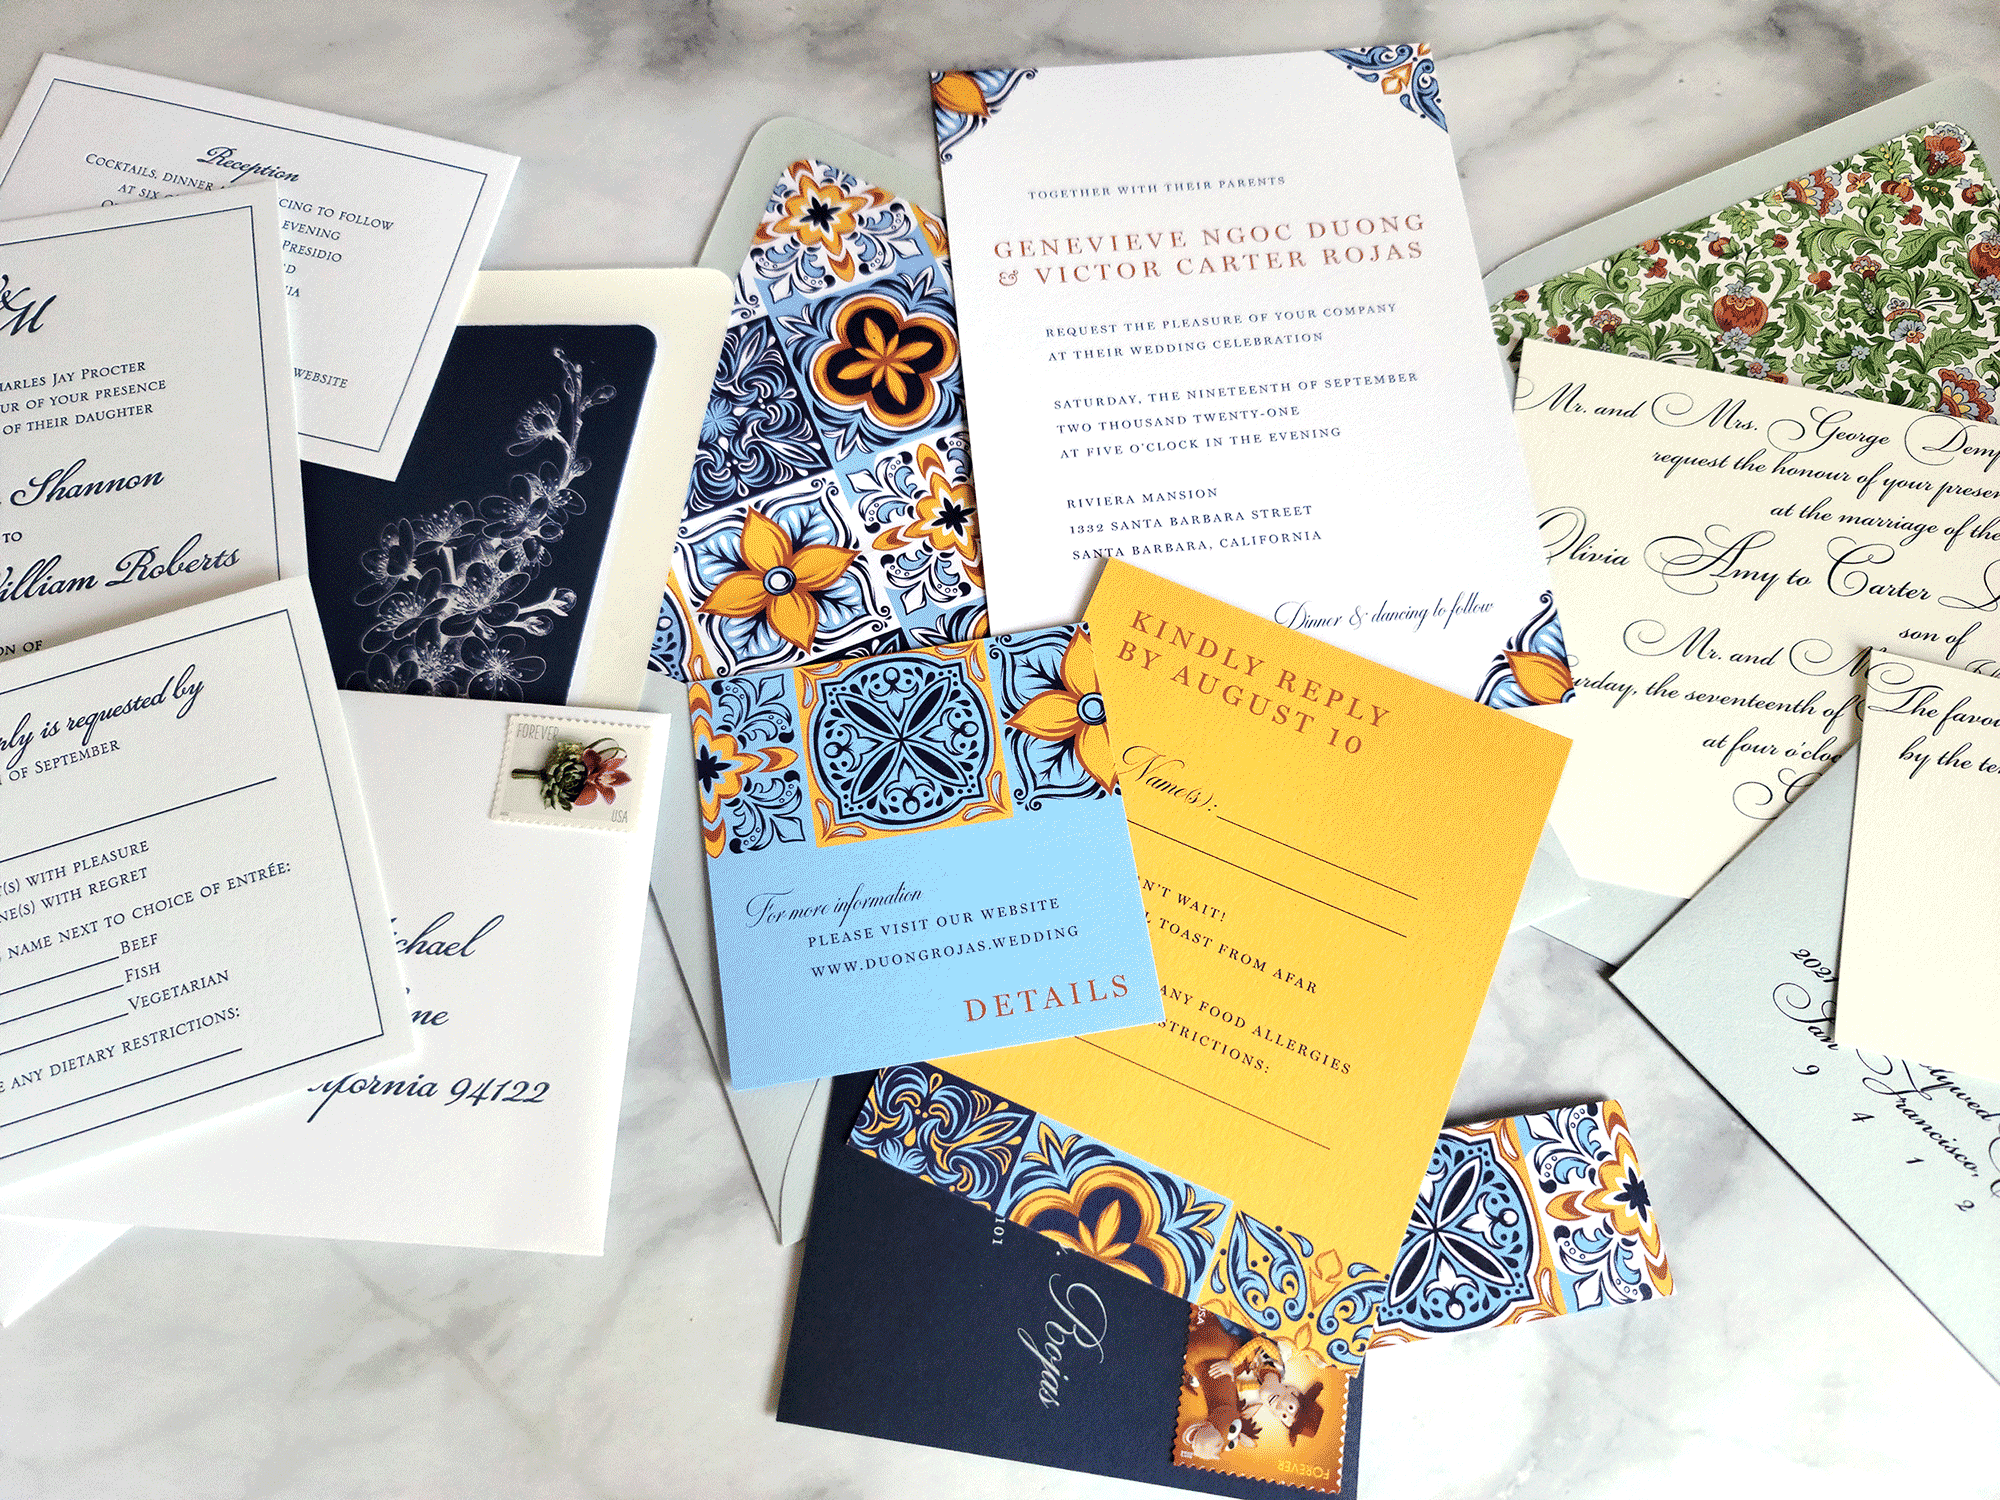 Reception
COCKTAILS, DINNER
CING TO FOLLOW
AT SIX
EVENING
PRESIDIO
WEBSITE
&
M
CHARLES JAY PROCTER
OF YOUR PRESENCE
OF THEIR DAUGHTER
Shannon
TO
William Roberts
SON OF
is requested by
OF SEPTEMBER
WITH PLEASURE
WITH REGRET
NAME NEXT TO CHOICE OF ENTRÉE:
BEEF
FISH
VEGETARIAN
ANY DIETARY RESTRICTIONS:
FOREVER
USA
94122
TOGETHER WITH THEIR PARENTS
GENEVIEVE NGOC DUONG
& VICTOR CARTER ROJAS
REQUEST THE PLEASURE OF YOUR COMPANY
AT THEIR WEDDING CELEBRATION
SATURDAY, THE NINETEENTH OF SEPTEMBER
TWO THOUSAND TWENTY-ONE
AT FIVE O'CLOCK IN THE EVENING
RIVIERA MANSION
1332 SANTA BARBARA STREET
SANTA BARBARA, CALIFORNIA
Dinner & dancing to follow
KINDLY REPLY
BY AUGUST 10
Name(s):
N'T WAIT!
TOAST FROM AFAR
ANY FOOD ALLERGIES
STRICTIONS:
For more information
PLEASE VISIT OUR WEBSITE
WWW.DUONGROJAS.WEDDING
DETAILS
101
Rojas
USA
FOREVER
Mr. and Mrs. George Demp
request the honour of your presen
at the marriage of the
Olivia Amy to Carter
son of
Mr. and
urday, the seventeenth of
at four o'cloc
The favou
by the te
2021
San Francisco,
9 4 1 2